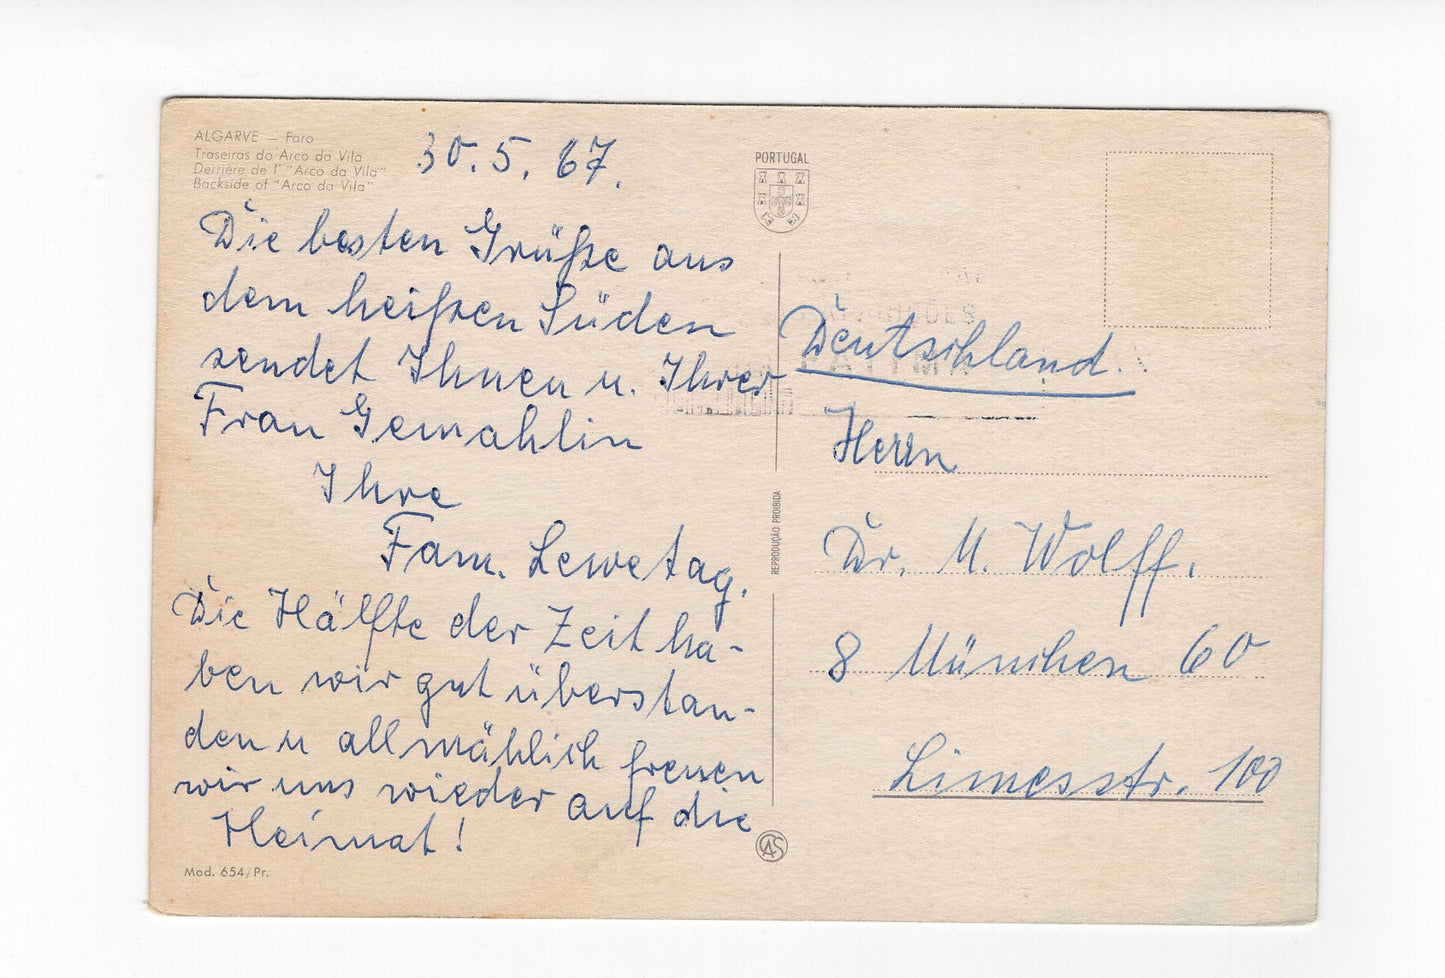 ALGARVE — Faro
Traseiras do Arco da Vila
Derrière de l' "Arco da Vila"
Backside of "Arco da Vila"
30.5.67.
Die besten Grüße aus
dem heißen Süden
sendet Ihnen u. Ihrer
Frau Gemahlin
Ihre
Fam. Lewetag.
Die Hälfte der Zeit ha-
ben wir gut überstan-
den u allmählich freuen
wir uns wieder auf die
Heimat!
Mod. 654/Pr.
PORTUGAL
REPRODUÇÃO PROIBIDA
CAS
FATIMA
Deutschland.
Herrn
Dr. M. Wolff.
8 München 60
Limesstr. 100